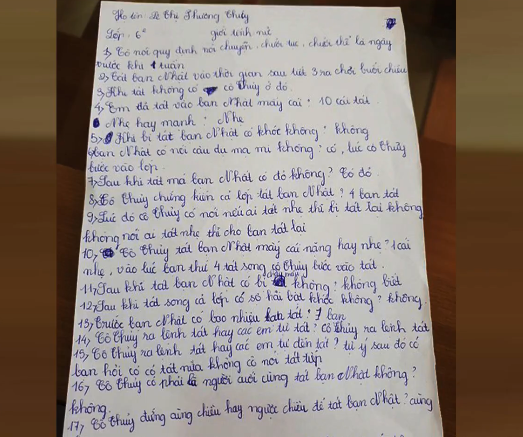 Họ tên: Lê Thị Phương Thủy
Lớp: 6² giới tính nữ
1, Cô nói quy định nói chuyện, chửi tục, chửi thề là ngày
trước khi 1 tuần
2, Tát bạn Nhật vào thời gian sau tiết 3 ra chơi buổi chiều
3, Khi tát không có cô Thủy ở đó.
4, Em đã tát vào bạn Nhật mấy cái: 10 cái tát
Nhẹ hay mạnh: Nhẹ
5, Khi bị tát bạn Nhật có khóc không: không
6 bạn Nhật có nói câu du ma mi không? có, lúc cô Thủy
bước vào lớp.
7, Sau khi tát má bạn Nhật có đỏ không? Có đỏ.
8, Cô Thủy chứng kiến cả lớp tát bạn Nhật? 4 bạn tát
9, Lúc đó cô Thủy có nói nếu ai tát nhẹ thì bị tát lại không
không nói ai tát nhẹ thì cho bạn tát lại
10, Cô Thủy tát bạn Nhật mấy cái nặng hay nhẹ 1 cái
nhẹ, vào lúc bạn thứ 4 tát song cô Thủy bước vào tát.
11, Sau khi tát bạn Nhật có bị chảy máu không: không biết
12, Sau khi tát song cả lớp có sợ hãi bật khóc không? không.
13, Trước bạn Nhật có bao nhiêu bạn tát: 7 bạn
14, Cô Thủy ra lệnh tát hay các em tự tát? Cô Thủy ra lệnh tát
15, Cô Thủy ra lệnh tát hay các em tự đến tát? tự ý sau đó có
bạn hỏi cô có tát nữa không cô nói tát tiếp
16, Cô Thủy có phải là người cuối cùng tát bạn Nhật không?
không.
17, Cô Thủy đứng cùng chiều hay ngược chiều để tát bạn Nhật? cùng